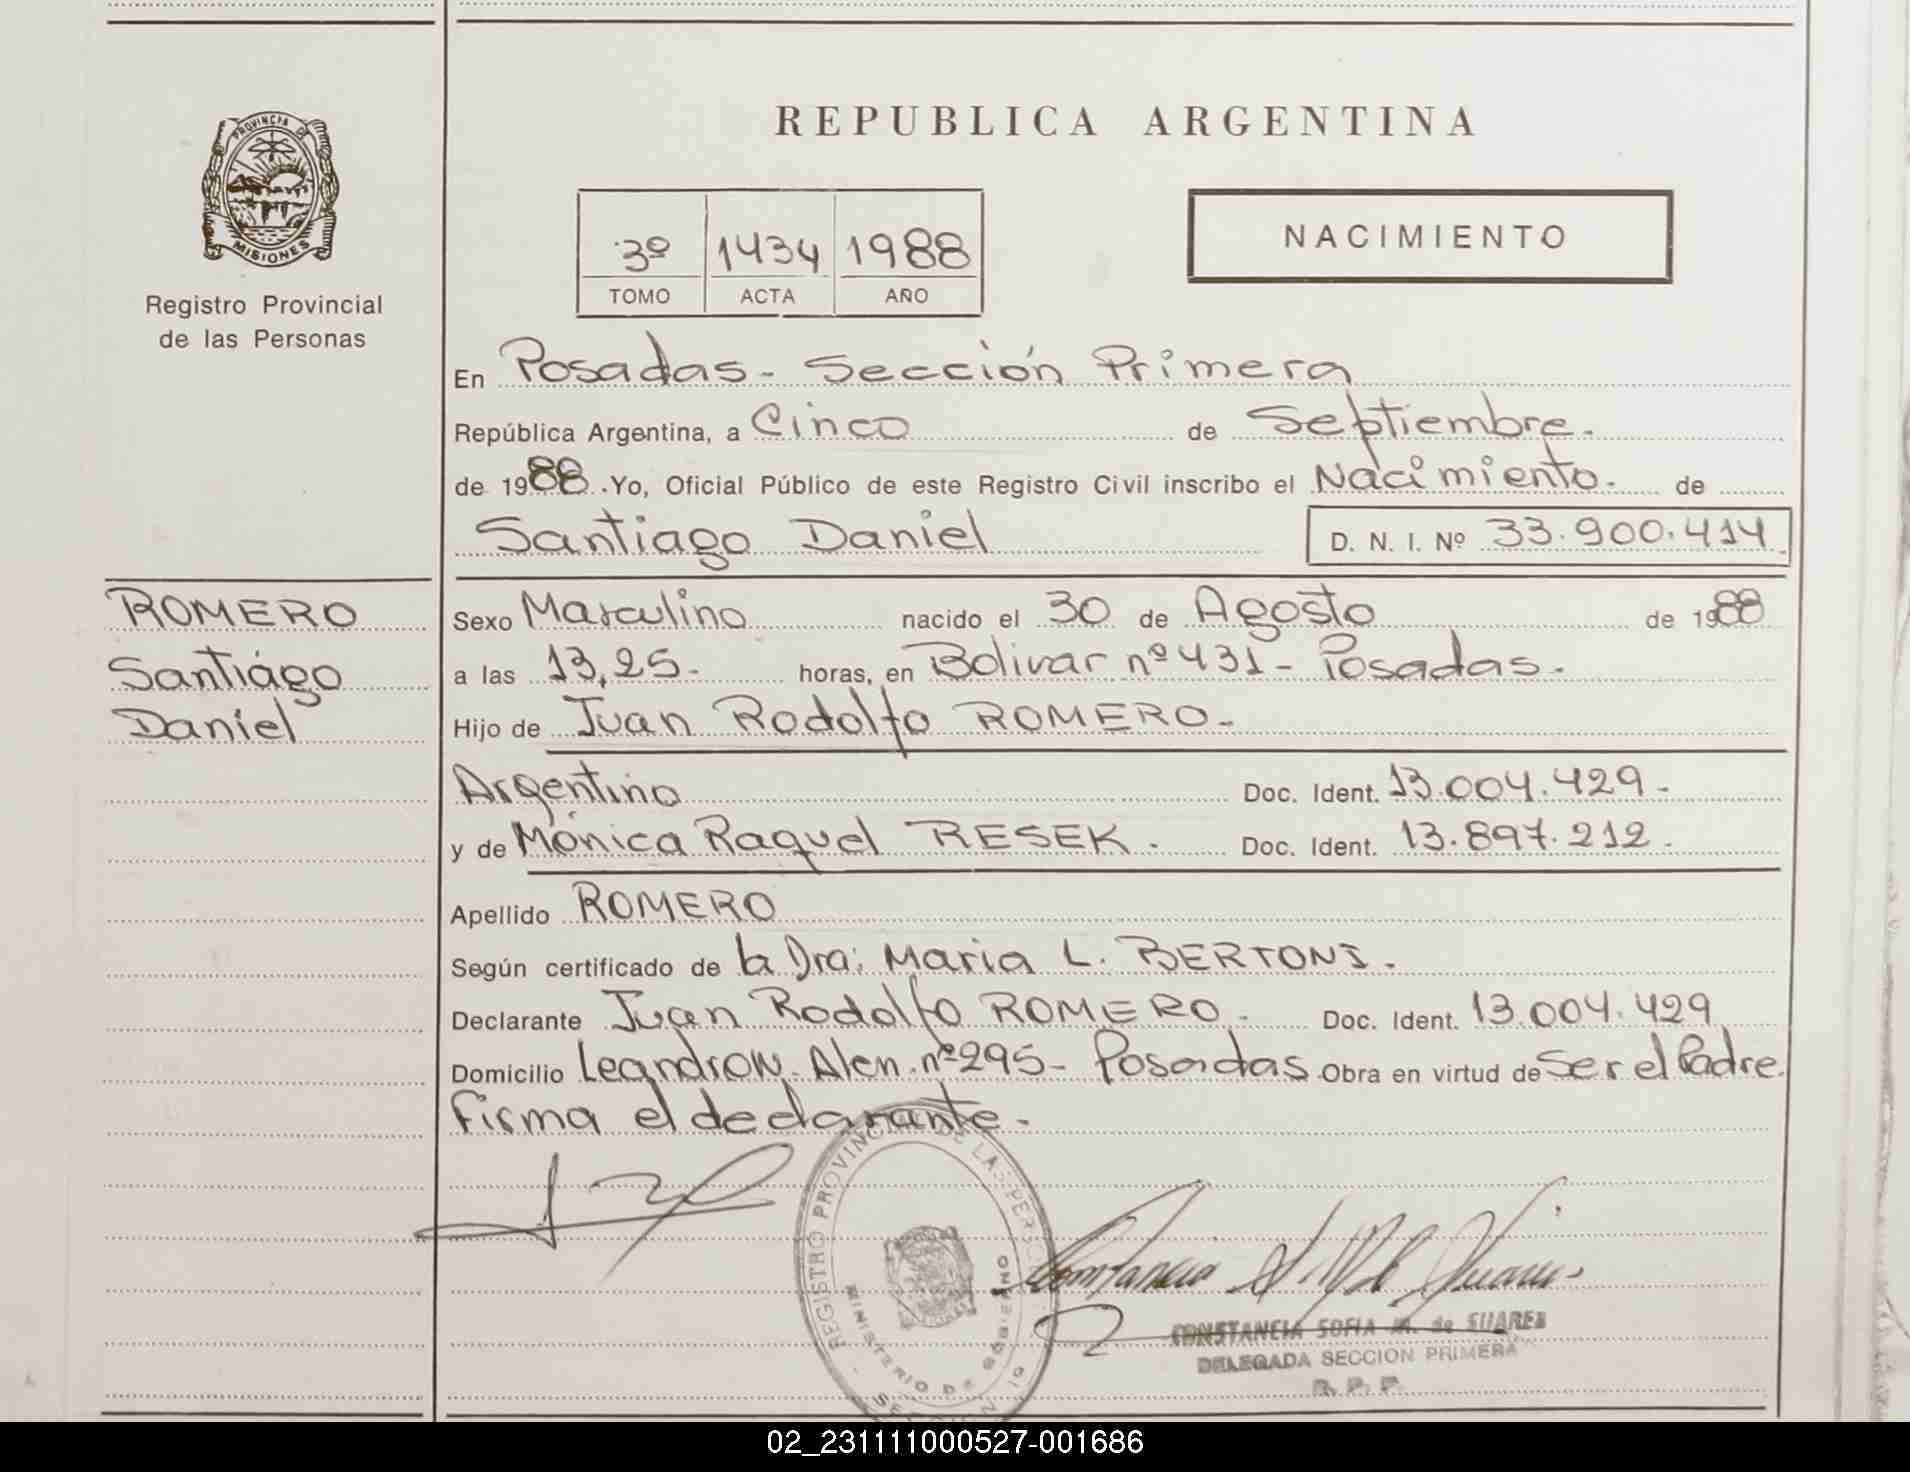 REPUBLICA ARGENTINA
PROVINCIA DE
MISIONES
Registro Provincial
de las Personas
3º 1434 1988
TOMO ACTA AÑO
NACIMIENTO
En Posadas - Sección Primera
República Argentina, a Cinco de Septiembre.
de 1988. Yo, Oficial Público de este Registro Civil inscribo el Nacimiento. de
Santiago Daniel D. N. I. Nº 33.900.414
ROMERO
Santiago
Daniel
Sexo Masculino nacido el 30 de Agosto de 1988
a las 13,25. horas, en Bolivar nº 431 - Posadas.
Hijo de Juan Rodolfo ROMERO.
Argentino Doc. Ident. 13.004.429.
y de Mónica Raquel RESEK. Doc. Ident. 13.897.212.
Apellido ROMERO
Según certificado de la Dra: Maria L. BERTONI.
Declarante Juan Rodolfo ROMERO. Doc. Ident. 13.004.429
Domicilio Leandro N. Alen. nº 295 - Posadas Obra en virtud de Ser el Padre.
Firma el declarante.
REGISTRO PROVINCIAL DE LAS PERSONAS
MINISTERIO DE GOBIERNO
CONSTANCIA SOFIA M. de SUAREZ
DELEGADA SECCION PRIMERA
R. P. P.
02_231111000527-001686